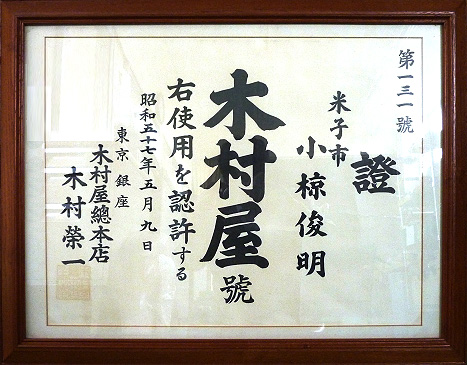 第一三一號
證
米子市
小椋俊明
木村屋號
右使用を認許する
昭和五十七年五月九日
東京 銀座
木村屋總本店
木村榮一